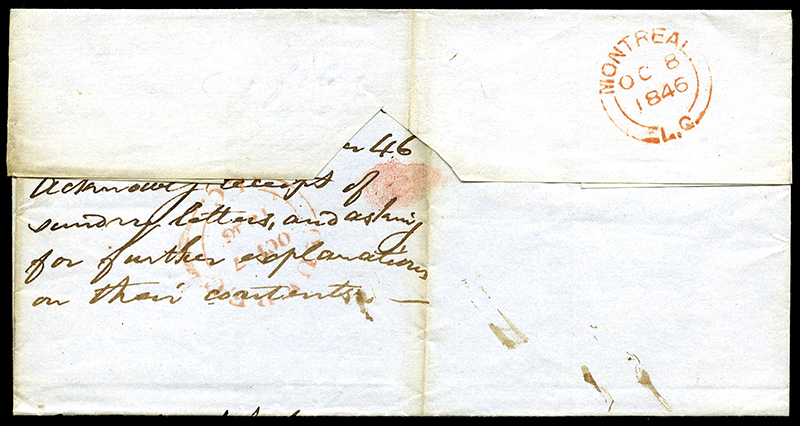 MONTREAL
OC 8
1846
L.C.
r 46
Acknowg receipt of
sundry letters, and asking
for further explanations
on their contents. —
OCT 7